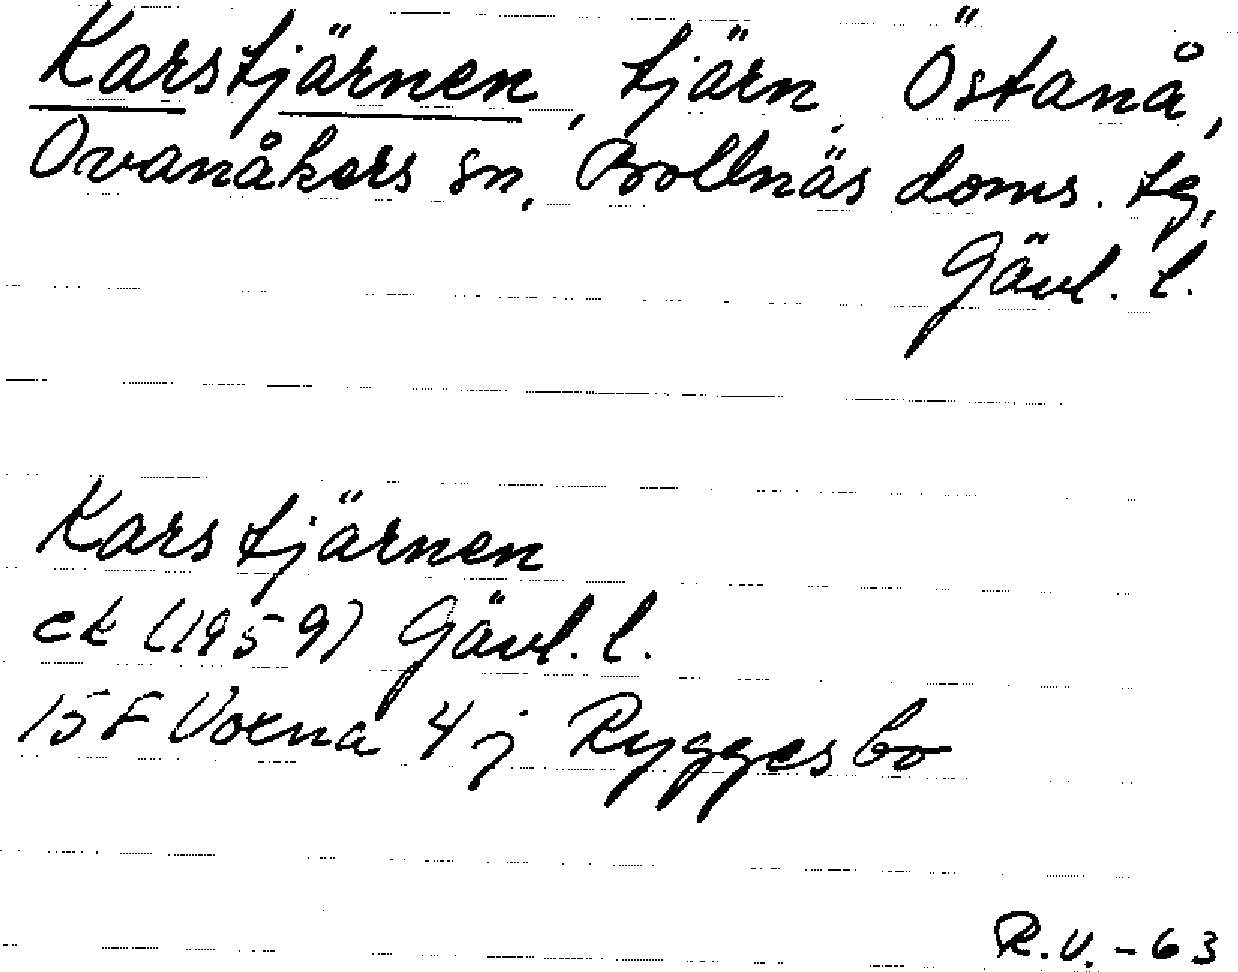 Karstjärnen, tjärn, Östanå,
Ovanåkers sn, Bollnäs doms. tg,
Gävl. l.
Karstjärnen
ek (1959) Gävl. l.
15F Voxna 4 j Ryggesbo
R.V. - 63